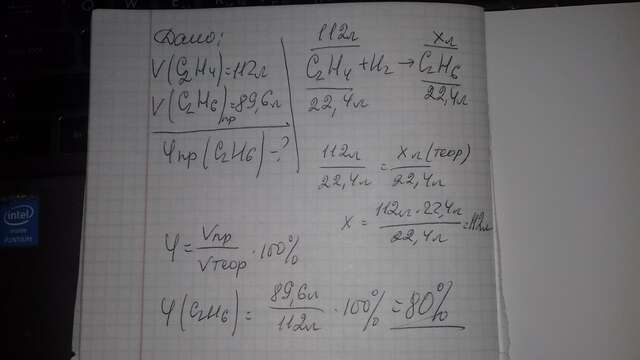 Дано:
V(C2H4)=112л
V(C2H6)пр=89,6л
φпр(C2H6)-?
112л
xл
C2H4+H2→C2H6
22,4л
22,4л
112л/22,4л=xл(теор)/22,4л
x=112л·22,4л/22,4л=112л
φ=Vпр/Vтеор·100%
φ(C2H6)=89,6л/112л·100%=80%
intel
inside
PENTIUM